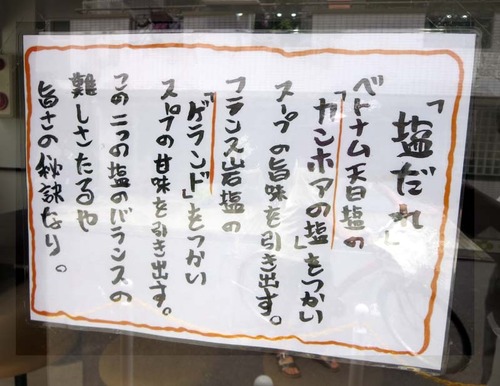 「塩だれ」
ベトナム天日塩の
「カンホアの塩」をつかい
スープの旨味を引き出す。
フランス岩塩の
「ゲランド」をつかい
スープの甘味を引き出す。
この二つの塩のバランスの
難しさたるや
旨さの秘訣なり。